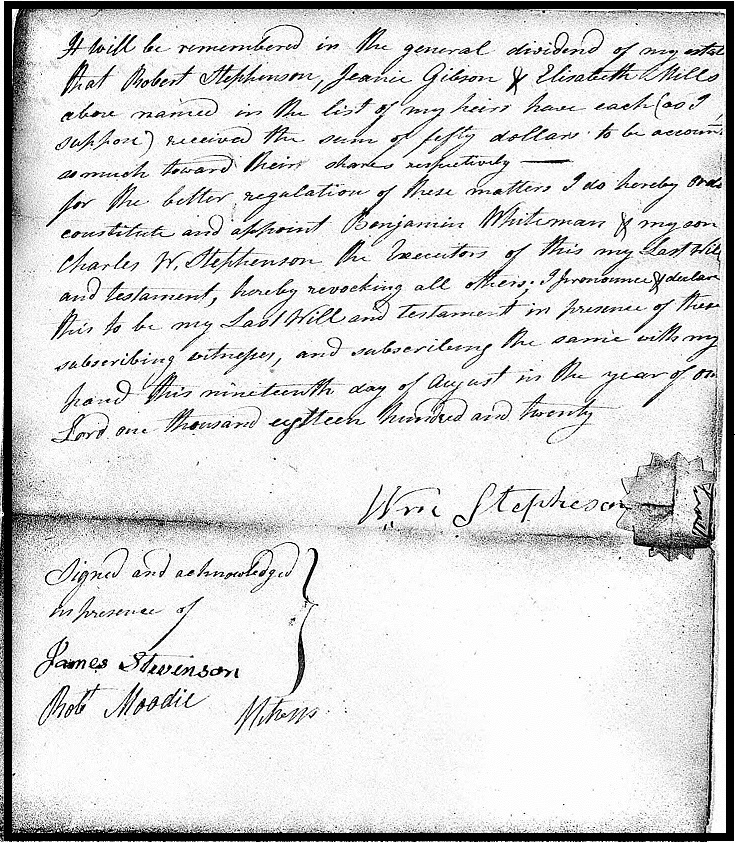 It will be remembered in the general dividend of my estat
that Robert Stephenson, Jeanie Gibson & Elisabeth Mills
above named in the list of my heirs have each (as I
suppose) received the sum of fifty dollars to be accoun
as much toward their shares respectively —
for the better regulation of these matters I do hereby orda
constitute and appoint Benjamin Whiteman & my son
Charles W. Stephenson the Executors of this my Last Will
and testament, hereby revocking all others; I pronounce & declare
this to be my Last Will and testament in presence of these
subscribing witnesses, and subscribing the same with my
hand this nineteenth day of August in the year of ou
Lord one thousand eighteen hundred and twenty
Wm Stepheson
Signed and acknowledged
in presence of
James Stevinson
Robt Moodie